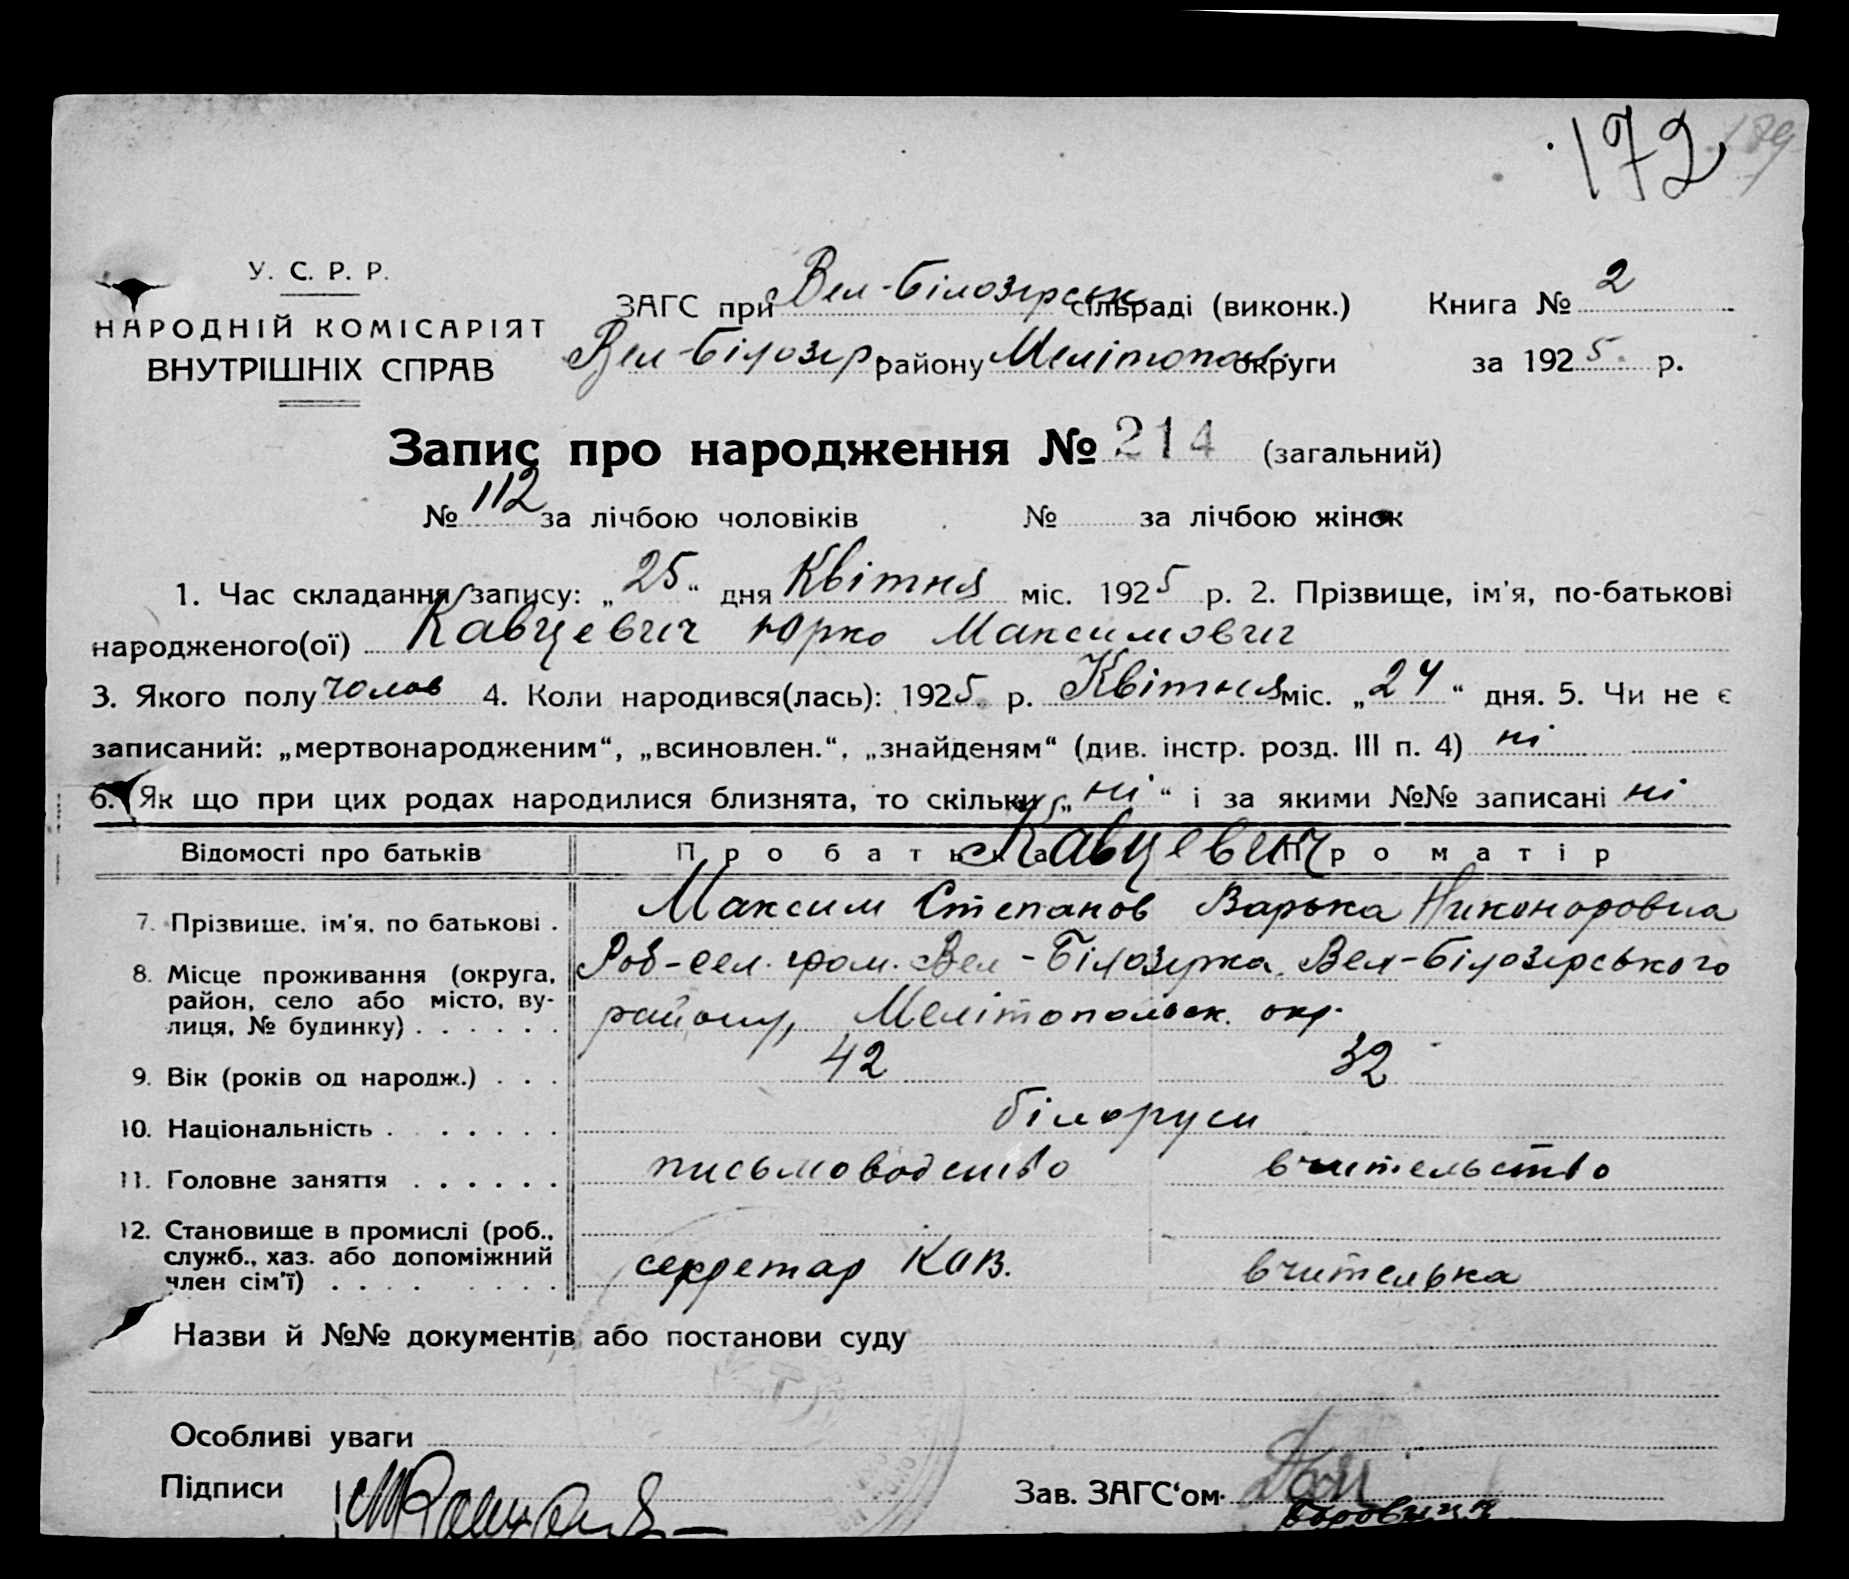 172 179
У. С. Р. Р.
НАРОДНІЙ КОМІСАРІЯТ
ВНУТРІШНІХ СПРАВ
ЗАГС при Вел-Білозерськ сільраді (виконк.) Книга № 2
Вел-Білозер. району Мелітополь округи за 1925 р.
Запис про народження № 214 (загальний)
№ 112 за лічбою чоловіків № за лічбою жінок
1. Час складання запису: „25“ дня Квітня міс. 1925 р. 2. Прізвище, ім'я, по-батькові
народженого(ої) Кавцевич Юрко Максимович
3. Якого полу чолов 4. Коли народився(лась): 1925 р. Квітня міс. „24“ дня. 5. Чи не є
записаний: „мертвонародженим“, „всиновлен.“, „знайденям“ (див. інстр. розд. III п. 4) ні
6. Як що при цих родах народилися близнята, то скільки „ні“ і за якими №№ записані ні
Відомості про батьків Про батька Про матір
Кавцевич
7. Прізвише, ім'я, по батькові . Максим Степанов Варька Никоноровна
8. Місце проживання (округа, Роб-сел. гром. Вел-Білозерка Вел-Білозерського
район, село або місто, ву-
лиця, № будинку) . . . . . . району, Мелітопольск. окр.
9. Вік (років од народж.) . . . 42 32
10. Національність . . . . . . . білоруси
11. Головне заняття . . . . . . письмоводство вчительство
12. Становище в промислі (роб.,
служб., хаз. або допоміжний секретар КОВ. вчителька
член сім'ї) . . . . . . . .
Назви й №№ документів або постанови суду
Особливі уваги
Підписи Зав. ЗАГС‘ом